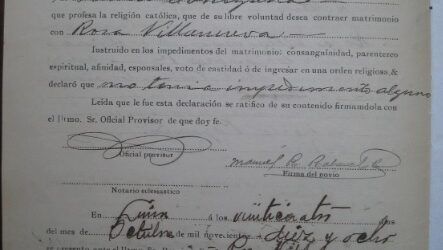 que profesa la religión católica, que de su libre voluntad desea contraer matrimonio
con Rosa Villanueva
Instruido en los impedimentos del matrimonio: consanguinidad, parenteseo
espiritual, afinidad, esponsales, voto de castidad ó de ingresar en una orden religiosa, &
declaró que no tenia impedimento alguno
Leida que le fue esta declaración se ratifico de su contenido firmandola
con el Iltmo. Sr. Oficial Provisor de que doy fe.
Oficial provisor
Firma del novio
Notario eclesiastico
En Lima á los veinticuatro dias
del mes de Octubre de mil novecientos diez y ocho